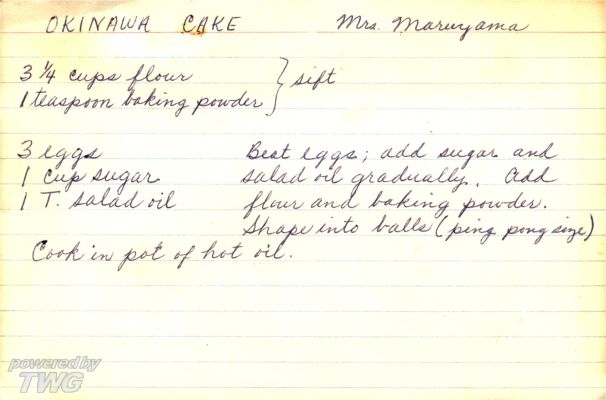 OKINAWA CAKE Mrs. Maruyama
3 1/4 cups flour } sift
1 teaspoon baking powder
3 eggs Beat eggs; add sugar and
1 cup sugar salad oil gradually. Add
1 T. salad oil flour and baking powder.
Shape into balls (ping pong size)
Cook in pot of hot oil.
powered by
TWG